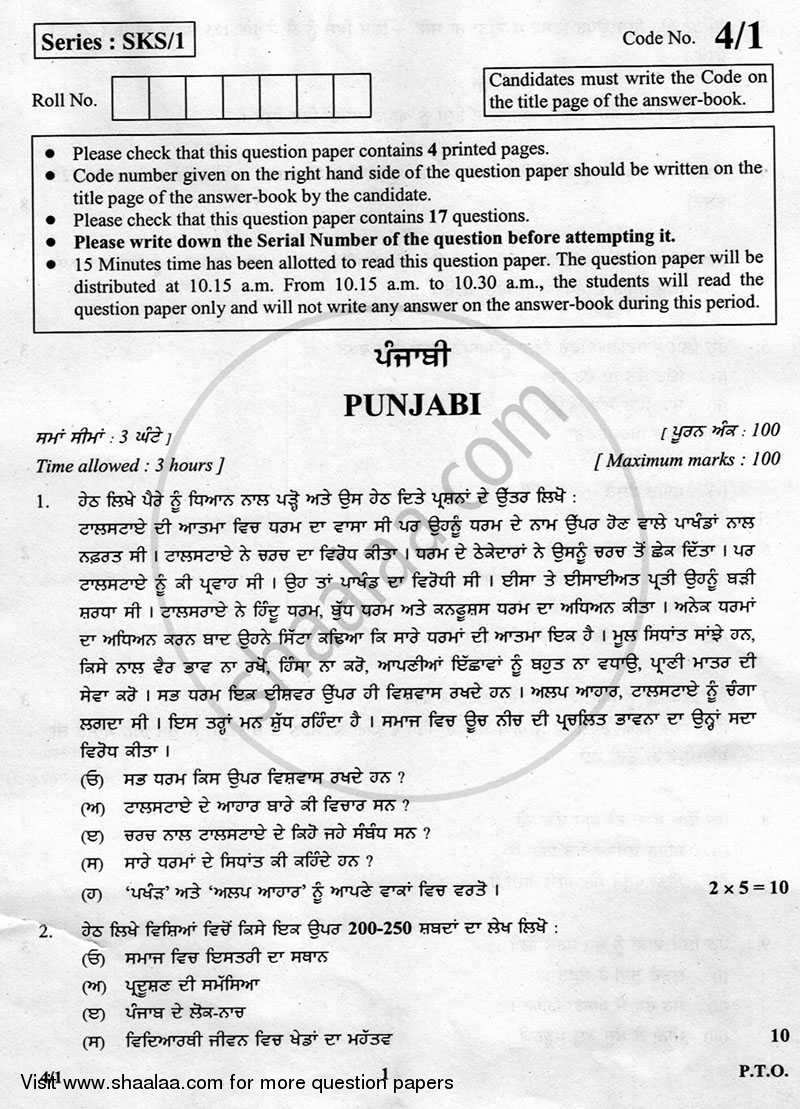 Series : SKS/1
Code No. 4/1
Roll No.
Candidates must write the Code on
the title page of the answer-book.
● Please check that this question paper contains 4 printed pages.
● Code number given on the right hand side of the question paper should be written on the
title page of the answer-book by the candidate.
● Please check that this question paper contains 17 questions.
● Please write down the Serial Number of the question before attempting it.
● 15 Minutes time has been allotted to read this question paper. The question paper will be
distributed at 10.15 a.m. From 10.15 a.m. to 10.30 a.m., the students will read the
question paper only and will not write any answer on the answer-book during this period.
ਪੰਜਾਬੀ
PUNJABI
ਸਮਾਂ ਸੀਮਾਂ : 3 ਘੰਟੇ ]
[ ਪੂਰਨ ਅੰਕ : 100
Time allowed : 3 hours ]
[ Maximum marks : 100
1. ਹੇਠ ਲਿਖੇ ਪੈਰੇ ਨੂੰ ਧਿਆਨ ਨਾਲ ਪੜ੍ਹੋ ਅਤੇ ਉਸ ਹੇਠ ਦਿਤੇ ਪ੍ਰਸ਼ਨਾਂ ਦੇ ਉੱਤਰ ਲਿਖੋ :
ਟਾਲਸਟਾਏ ਦੀ ਆਤਮਾ ਵਿਚ ਧਰਮ ਦਾ ਵਾਸਾ ਸੀ ਪਰ ਉਹਨੂੰ ਧਰਮ ਦੇ ਨਾਮ ਉੱਪਰ ਹੋਣ ਵਾਲੇ ਪਾਖੰਡਾਂ ਨਾਲ
ਨਫ਼ਰਤ ਸੀ । ਟਾਲਸਟਾਏ ਨੇ ਚਰਚ ਦਾ ਵਿਰੋਧ ਕੀਤਾ । ਧਰਮ ਦੇ ਠੇਕੇਦਾਰਾਂ ਨੇ ਉਸਨੂੰ ਚਰਚ ਤੋਂ ਛੇਕ ਦਿੱਤਾ । ਪਰ
ਟਾਲਸਟਾਏ ਨੂੰ ਕੀ ਪ੍ਰਵਾਹ ਸੀ । ਉਹ ਤਾਂ ਪਾਖੰਡ ਦਾ ਵਿਰੋਧੀ ਸੀ । ਈਸਾ ਤੇ ਈਸਾਈਅਤ ਪ੍ਰਤੀ ਉਹਨੂੰ ਬੜੀ
ਸ਼ਰਧਾ ਸੀ । ਟਾਲਸਰਾਏ ਨੇ ਹਿੰਦੂ ਧਰਮ, ਬੁੱਧ ਧਰਮ ਅਤੇ ਕਨਫੂਸ਼ਸ ਧਰਮ ਦਾ ਅਧਿਅਨ ਕੀਤਾ । ਅਨੇਕ ਧਰਮਾਂ
ਦਾ ਅਧਿਅਨ ਕਰਨ ਬਾਦ ਉਹਨੇ ਸਿੱਟਾ ਕਢਿਆ ਕਿ ਸਾਰੇ ਧਰਮਾਂ ਦੀ ਆਤਮਾ ਇਕ ਹੈ । ਮੂਲ ਸਿਧਾਂਤ ਸਾਂਝੇ ਹਨ,
ਕਿਸੇ ਨਾਲ ਵੈਰ ਭਾਵ ਨਾ ਰਖੋ, ਹਿੰਸਾ ਨਾ ਕਰੋ, ਆਪਣੀਆਂ ਇੱਛਾਵਾਂ ਨੂੰ ਬਹੁਤ ਨਾ ਵਧਾਉ, ਪ੍ਰਾਣੀ ਮਾਤਰ ਦੀ
ਸੇਵਾ ਕਰੋ । ਸਭ ਧਰਮ ਇਕ ਈਸ਼ਵਰ ਉੱਪਰ ਹੀ ਵਿਸ਼ਵਾਸ ਰਖਦੇ ਹਨ । ਅਲਪ ਆਹਾਰ, ਟਾਲਸਟਾਏ ਨੂੰ ਚੰਗਾ
ਲਗਦਾ ਸੀ । ਇਸ ਤਰ੍ਹਾਂ ਮਨ ਸ਼ੁੱਧ ਰਹਿੰਦਾ ਹੈ । ਸਮਾਜ ਵਿਚ ਊਚ ਨੀਚ ਦੀ ਪ੍ਰਚਲਿਤ ਭਾਵਨਾ ਦਾ ਉਨ੍ਹਾਂ ਸਦਾ
ਵਿਰੋਧ ਕੀਤਾ ।
(ੳ) ਸਭ ਧਰਮ ਕਿਸ ਉਪਰ ਵਿਸ਼ਵਾਸ ਰਖਦੇ ਹਨ ?
(ਅ) ਟਾਲਸਟਾਏ ਦੇ ਆਹਾਰ ਬਾਰੇ ਕੀ ਵਿਚਾਰ ਸਨ ?
(ੲ) ਚਰਚ ਨਾਲ ਟਾਲਸਟਾਏ ਦੇ ਕਿਹੋ ਜਹੇ ਸੰਬੰਧ ਸਨ ?
(ਸ) ਸਾਰੇ ਧਰਮਾਂ ਦੇ ਸਿਧਾਂਤ ਕੀ ਕਹਿੰਦੇ ਹਨ ?
(ਹ) ‘ਪਖੰਡ’ ਅਤੇ ‘ਅਲਪ ਆਹਾਰ’ ਨੂੰ ਆਪਣੇ ਵਾਕਾਂ ਵਿਚ ਵਰਤੋ । 2 × 5 = 10
2. ਹੇਠ ਲਿਖੇ ਵਿਸ਼ਿਆਂ ਵਿਚੋਂ ਕਿਸੇ ਇਕ ਉਪਰ 200-250 ਸ਼ਬਦਾਂ ਦਾ ਲੇਖ ਲਿਖੋ :
(ੳ) ਸਮਾਜ ਵਿਚ ਇਸਤਰੀ ਦਾ ਸਥਾਨ
(ਅ) ਪ੍ਰਦੂਸ਼ਣ ਦੀ ਸਮੱਸਿਆ
(ੲ) ਪੰਜਾਬ ਦੇ ਲੋਕ-ਨਾਚ
(ਸ) ਵਿਦਿਆਰਥੀ ਜੀਵਨ ਵਿਚ ਖੇਡਾਂ ਦਾ ਮਹੱਤਵ 10
4/1 1 P.T.O.
Visit www.shaalaa.com for more question papers
shaalaa.com